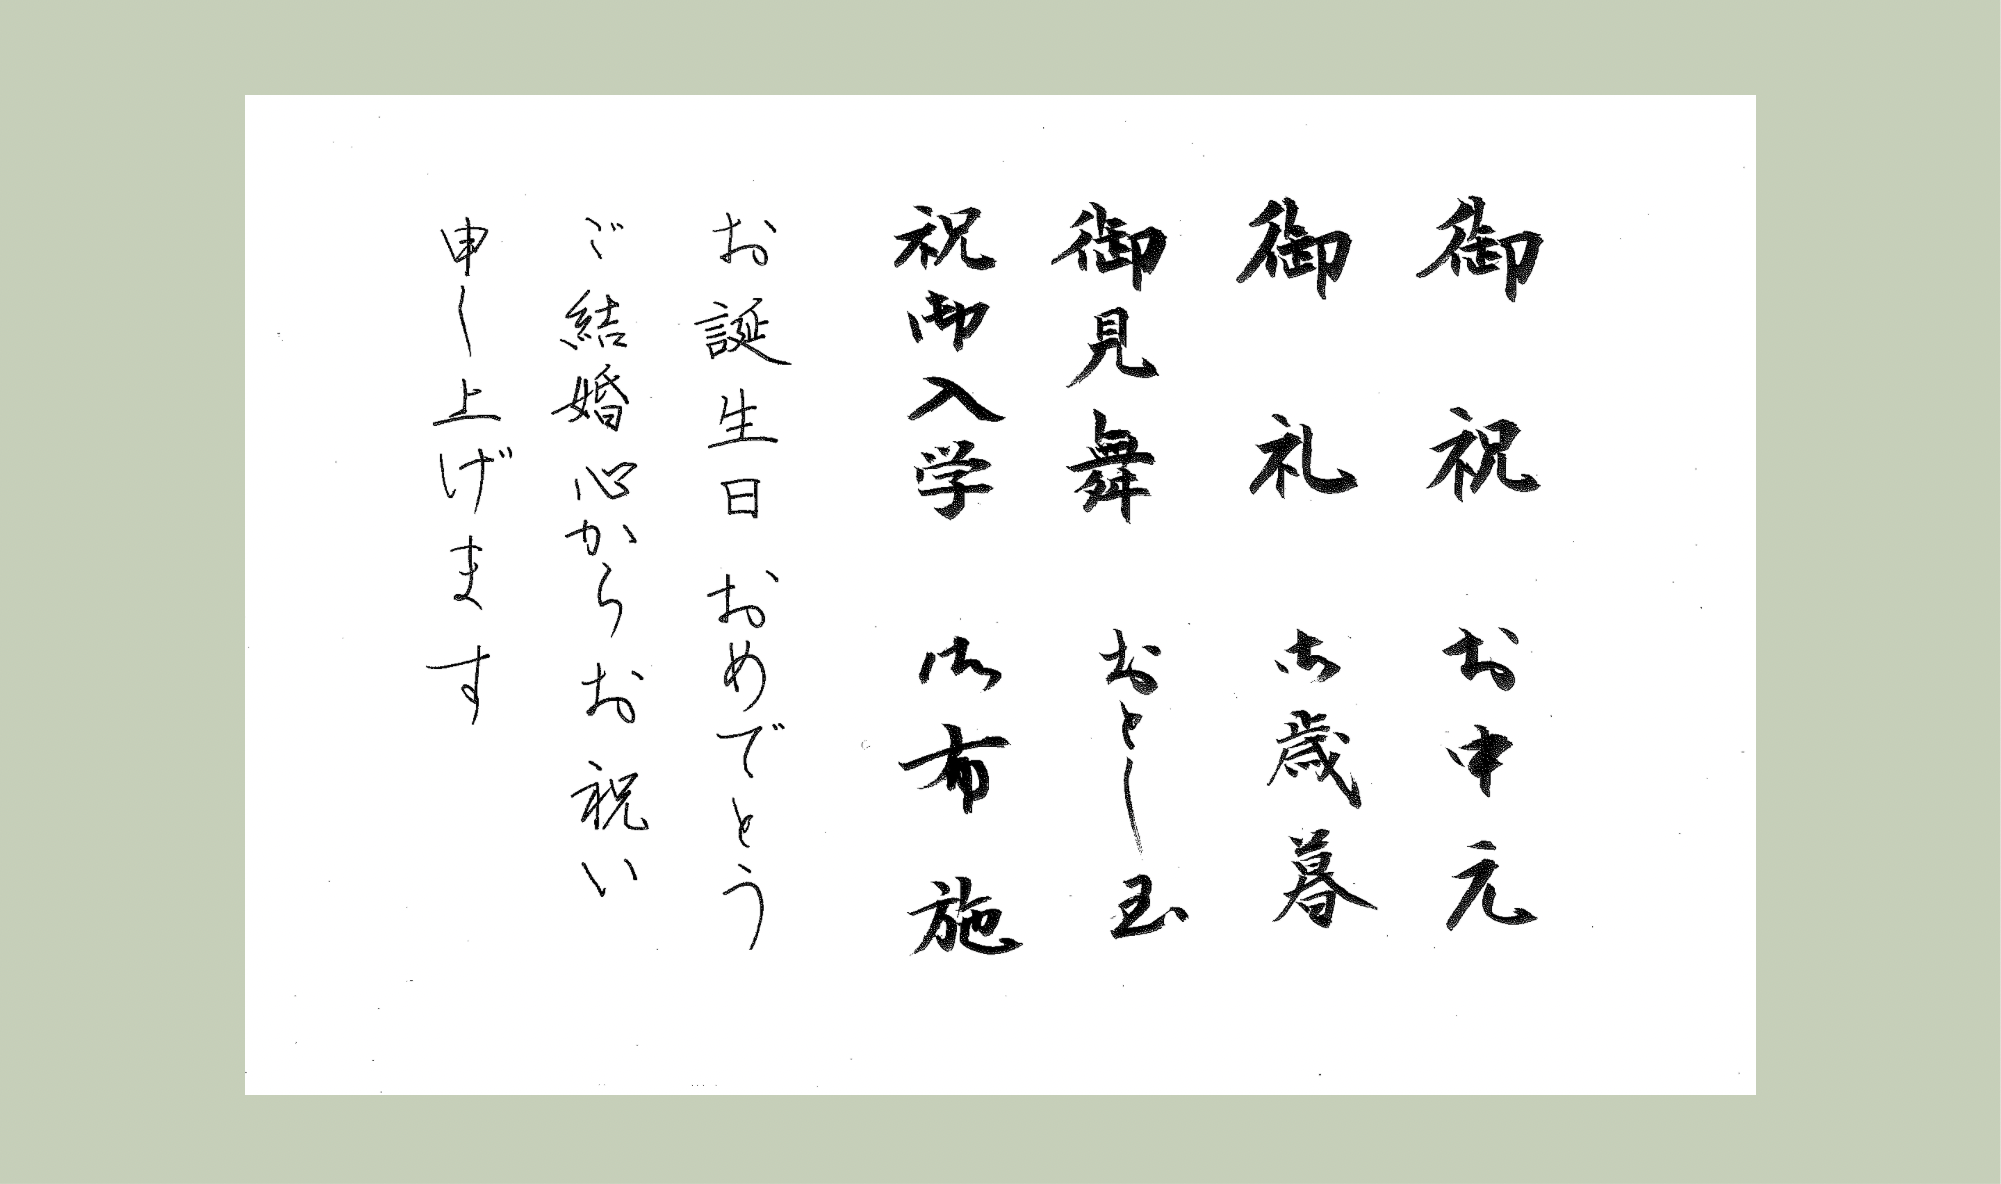 御祝 お中元
御礼 御歳暮
御見舞 おとし玉
祝御入学 御布施
お誕生日おめでとう
ご結婚心からお祝い
申し上げます